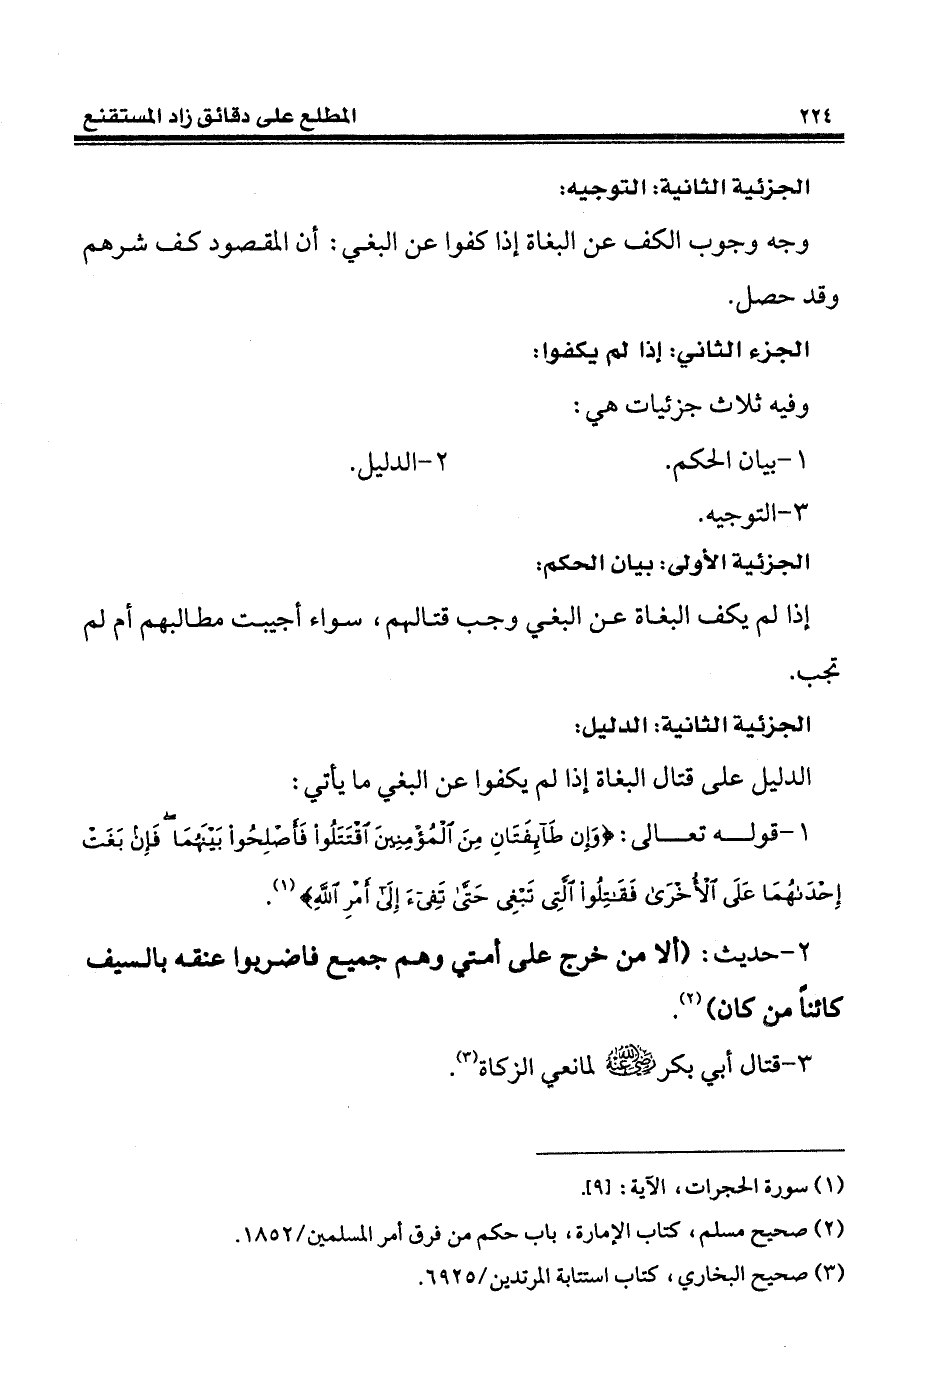 ٢٢٤ المطلع على دقائق زاد المستقنع
الجزئية الثانية: التوجيه:
وجه وجوب الكف عن البغاة إذا كفوا عن البغي: أن المقصود كف شرهم
وقد حصل.
الجزء الثاني: إذا لم يكفوا:
وفيه ثلاث جزئيات هي:
١-بيان الحكم. ٢-الدليل.
٣-التوجيه.
الجزئية الأولى: بيان الحكم:
إذا لم يكف البغاة عن البغي وجب قتالهم، سواء أجيبت مطالبهم أم لم
تجب.
الجزئية الثانية: الدليل:
الدليل على قتال البغاة إذا لم يكفوا عن البغي ما يأتي:
١-قوله تعالى: ﴿وَإِن طَآئِفَتَانِ مِنَ ٱلْمُؤْمِنِينَ ٱقْتَتَلُوا۟ فَأَصْلِحُوا۟ بَيْنَهُمَا ۖ فَإِنۢ بَغَتْ
إِحْدَىٰهُمَا عَلَى ٱلْأُخْرَىٰ فَقَـٰتِلُوا۟ ٱلَّتِى تَبْغِى حَتَّىٰ تَفِىٓءَ إِلَىٰٓ أَمْرِ ٱللَّهِ﴾(١).
٢-حديث: (ألا من خرج على أمتي وهم جميع فاضربوا عنقه بالسيف
كائناً من كان)(٢).
٣-قتال أبي بكر رضي الله عنه لمانعي الزكاة(٣).
(١) سورة الحجرات، الآية: [٩].
(٢) صحيح مسلم، كتاب الإمارة، باب حكم من فرق أمر المسلمين/١٨٥٢.
(٣) صحيح البخاري، كتاب استتابة المرتدين/٦٩٢٥.